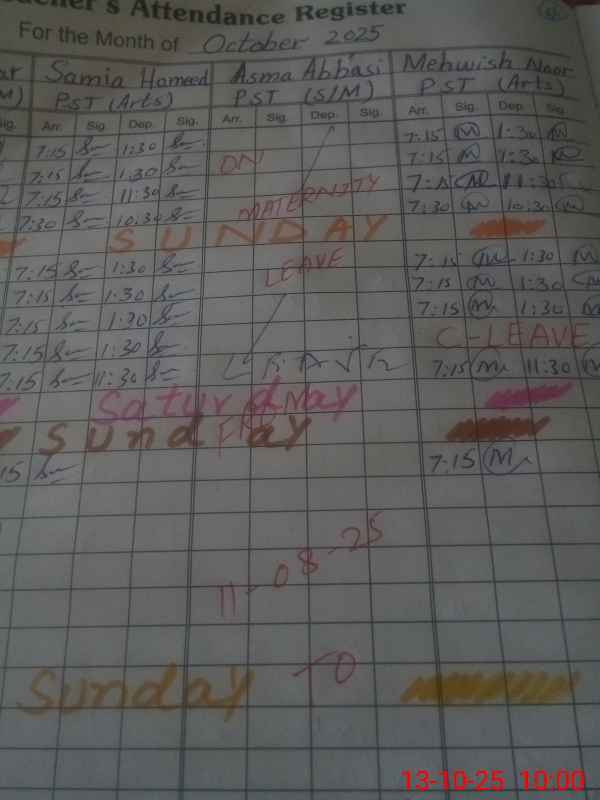 Attendance Register
For the Month of October 2025
Samia Hameed Asma Abbasi Mehwish Noor
PST (Arts) PST (S/M) PST (Arts)
Sig. Arr. Sig. Dep. Sig. Arr. Sig. Dep. Sig. Arr. Sig. Dep. Sig.
7:15 1:30 7:15 1:30
7:15 1:30 ON 7:15 1:30
7:15 11:30 7:15 11:30
7:30 10:30 MATERNITY 7:30 10:30
SUNDAY
7:15 1:30 LEAVE 7:15 1:30
7:15 1:30 7:15 1:30
7:15 1:30 7:15 1:30
7:15 1:30 C-LEAVE
7:15 11:30 7:15 11:30
Saturday
Sunday
15 7:15
11-08-25
Sunday
13-10-25 10:00